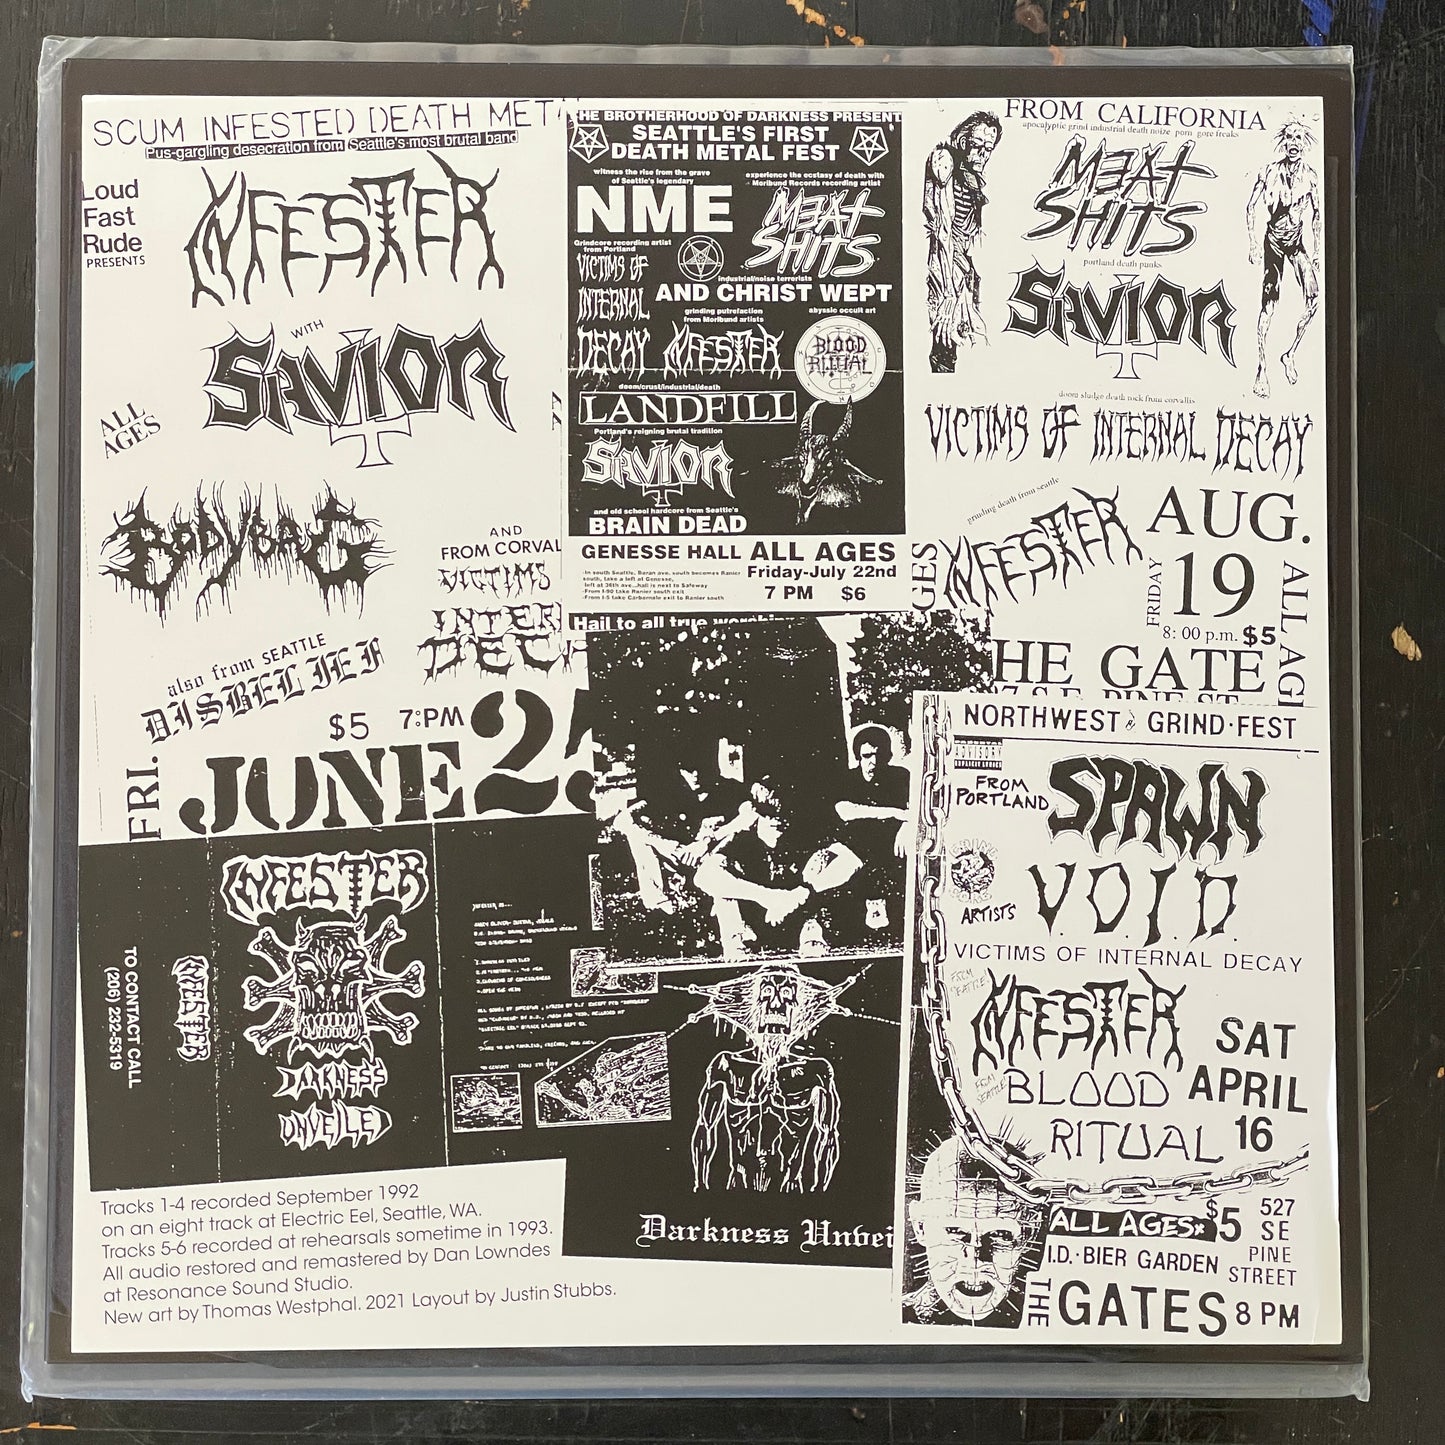 SCUM INFESTED DEATH META
Pus-gargling desecration from Seattle's most brutal band
Loud
Fast
Rude
PRESENTS
INFESTER
WITH
SAVIOR
ALL
AGES
BODYBAG
AND
FROM CORVAL
VICTIMS
INTER
DECA
also from SEATTLE
DISBELIEF
$5 7:PM
FRI.
JUNE 25
THE BROTHERHOOD OF DARKNESS PRESENT
SEATTLE'S FIRST
DEATH METAL FEST
witness the rise from the grave
of Seattle's legendary
NME
experience the ecstasy of death with
Moribund Records recording artist
MEAT
SHITS
Grindcore recording artist
from Portland
VICTIMS OF
INTERNAL
DECAY
industrial/noise terrorists
AND CHRIST WEPT
grinding putrefaction
from Moribund artists
INFESTER
abyssic occult art
BLOOD
RITUAL
doom/crust/industrial/death
LANDFILL
Portland's reigning brutal tradition
SAVIOR
and old school hardcore from Seattle's
BRAIN DEAD
GENESSE HALL ALL AGES
-In south Seattle. Boran ave. south becomes Ranier
south, take a left at Genesse,
left at 36th ave...hall is next to Safeway
-From I-90 take Ranier south exit
-From I-5 take Carbornate exit to Ranier south
Friday-July 22nd
7 PM $6
Hail to all true worship
FROM CALIFORNIA
apocalyptic grind industrial death noize porn gore freaks
MEAT
SHITS
portland death punks
SAVIOR
doom sludge death rock from corvallis
VICTIMS OF INTERNAL DECAY
grinding death from seattle
INFESTER
AUG.
FRIDAY
19
8:00 p.m. $5
GES
ALL AGE
HE GATE
7 S.E. PINE ST
NORTHWEST GRIND·FEST
ADVISORY
EXPLICIT LYRICS
FROM
PORTLAND
SPAWN
V.O.I.D.
ARTISTS
VICTIMS OF INTERNAL DECAY
FROM
SEATTLE
INFESTER
FROM
SEATTLE
BLOOD
RITUAL
SAT
APRIL
16
ALL AGES* $5
I.D.·BIER GARDEN
527
SE
PINE
STREET
THE
GATES 8 PM
TO CONTACT CALL
(206) 232-5319
INFESTER
INFESTER
DARKNESS
UNVEILED
Darkness Unvei
Tracks 1-4 recorded September 1992
on an eight track at Electric Eel, Seattle, WA.
Tracks 5-6 recorded at rehearsals sometime in 1993.
All audio restored and remastered by Dan Lowndes
at Resonance Sound Studio.
New art by Thomas Westphal. 2021 Layout by Justin Stubbs.